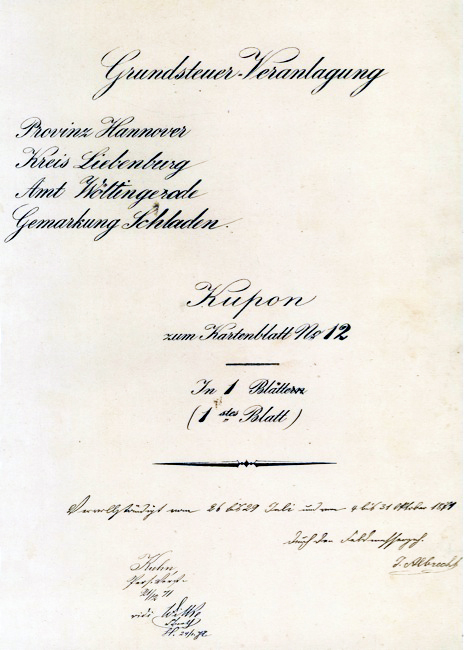 Grundsteuer-Veranlagung
Provinz Hannover
Kreis Liebenburg
Amt Wöltingerode
Gemarkung Schladen.
Kupon
zum Kartenblatt No 12
In 1 Blättern
(1 stes Blatt)
Vervollständigt vom 26 bis 29 Juli und vom 4 bis 31 Oktober
durch den
J. Albrecht
Kuhn
vidi